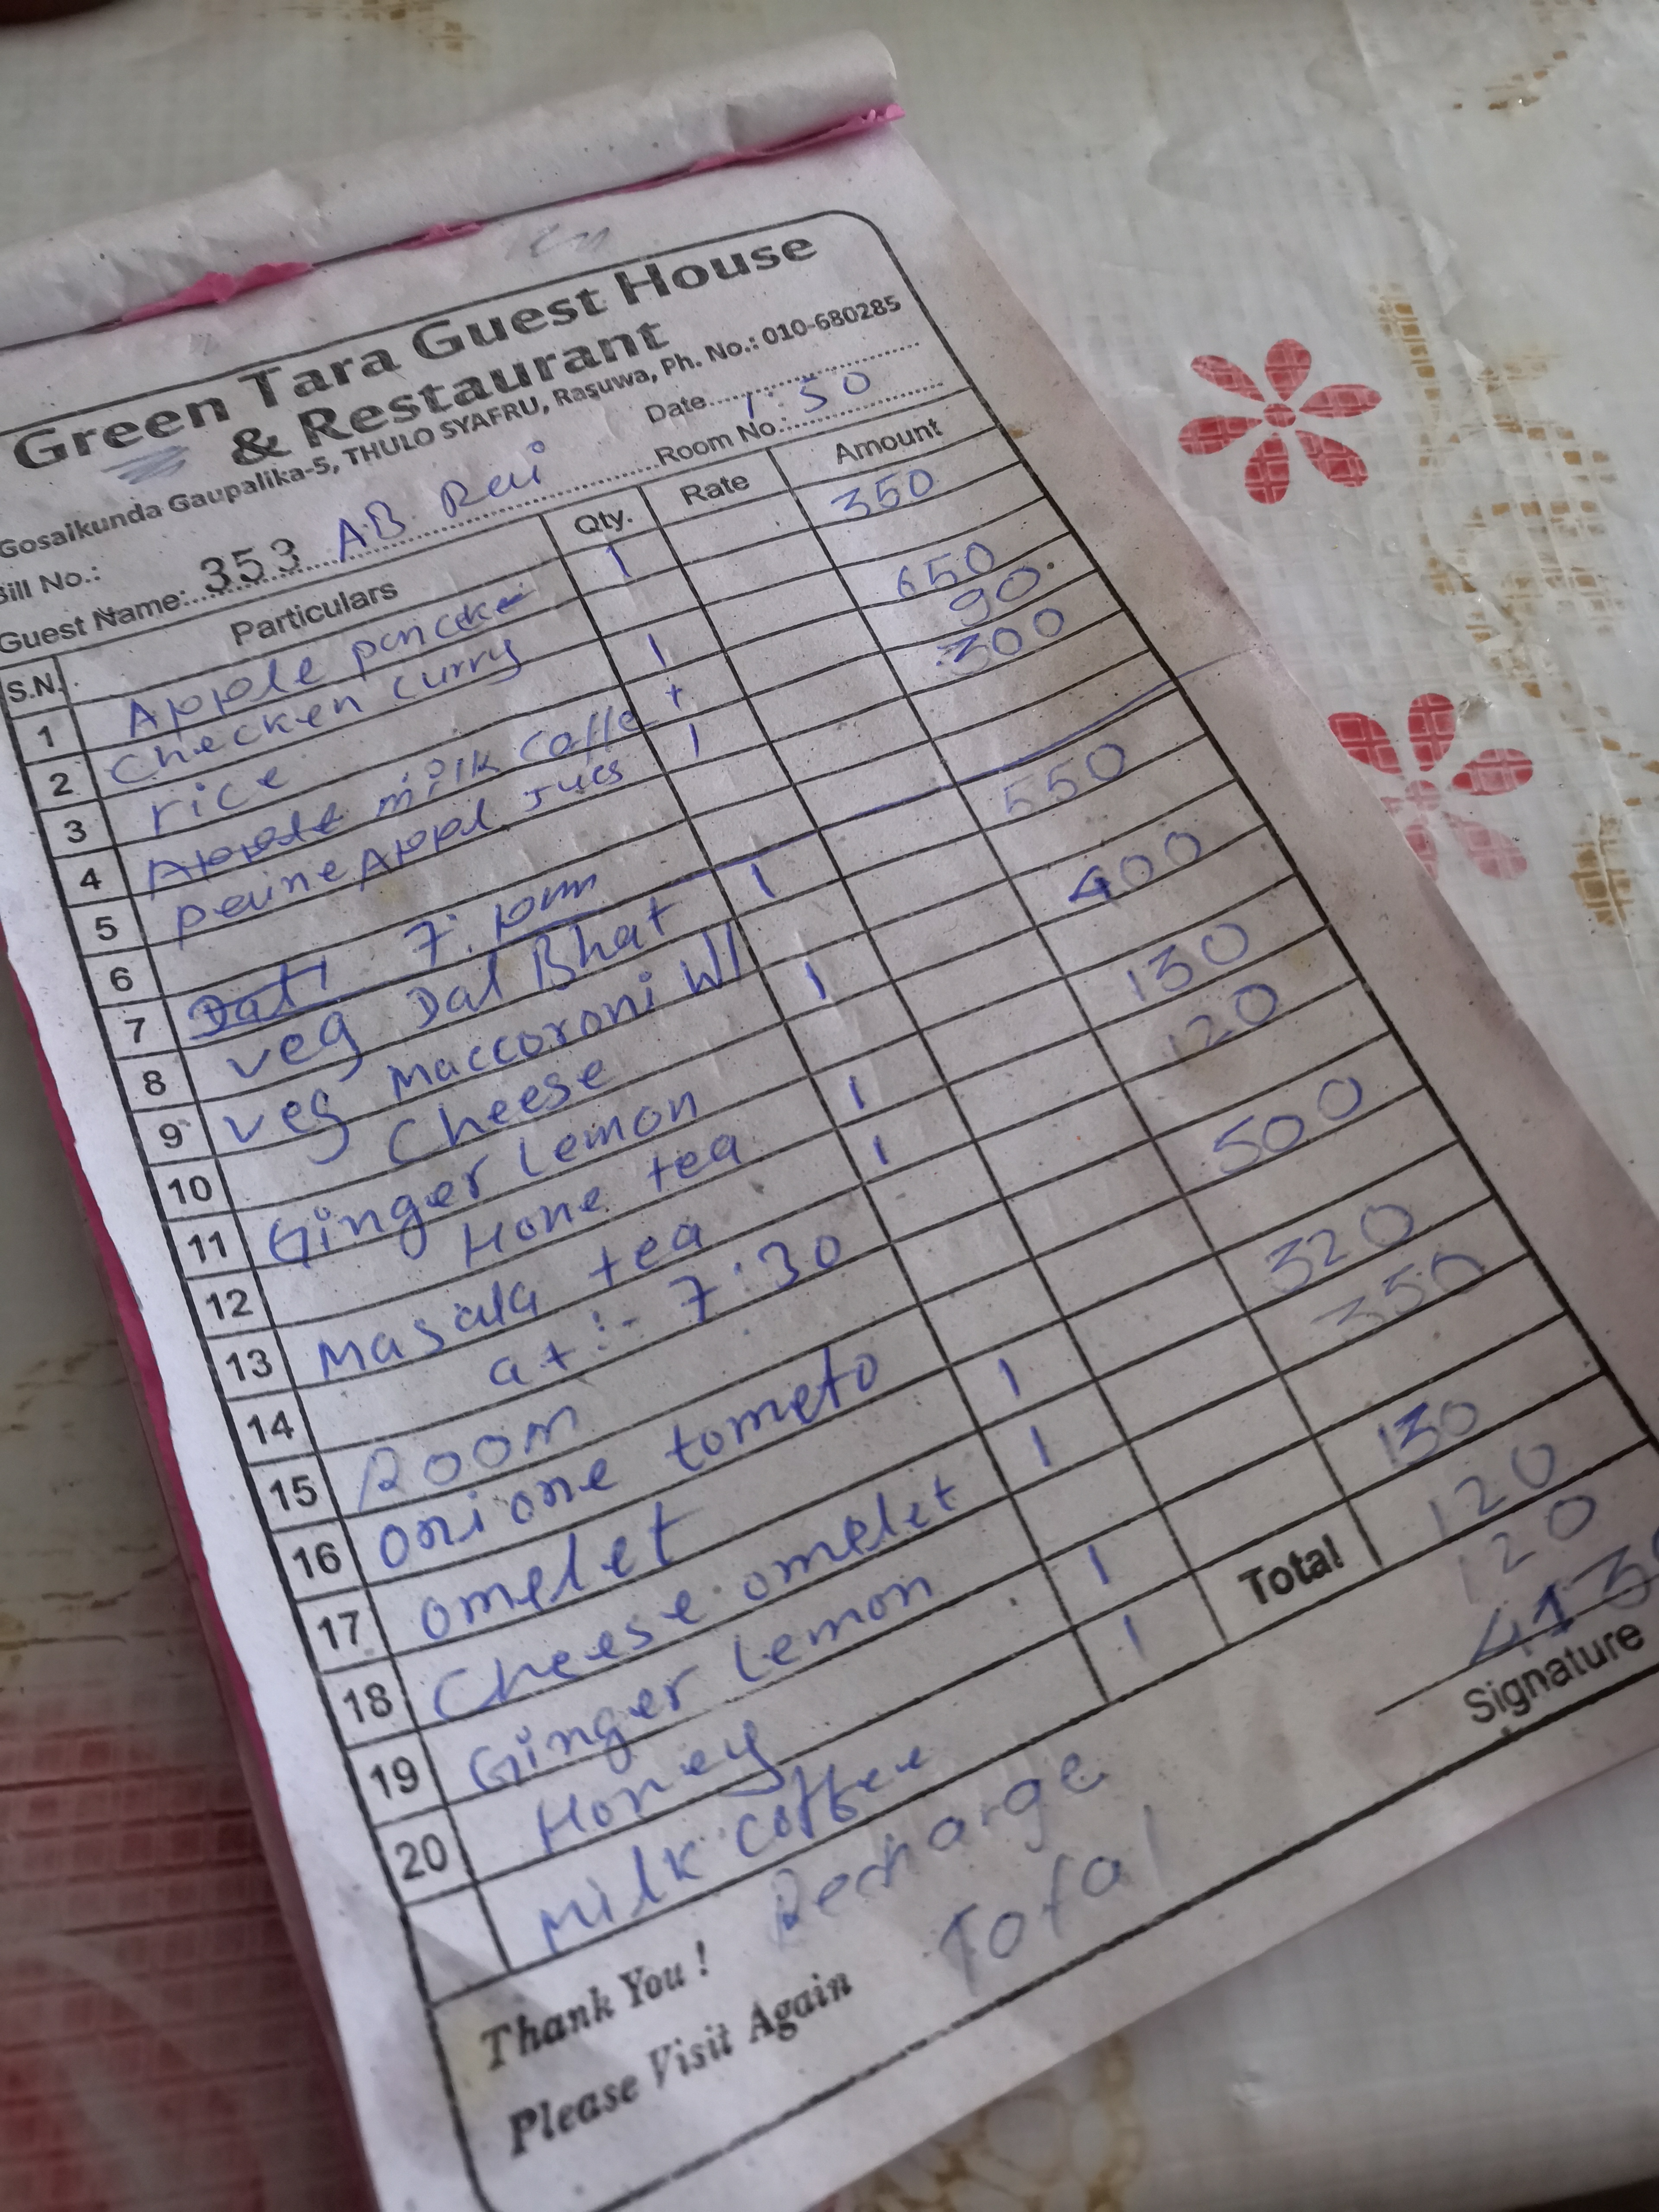 Green Tara Guest House
& Restaurant
Gosaikunda Gaupalika-5, THULO SYAFRU, Rasuwa, Ph. No.: 010-680285
Bill No.: 353 Date
Guest Name: AB Rai Room No.: 1:50
S.N. Particulars Qty. Rate Amount
1 Apple pancake 1 350
2 Checken curry
3 rice 1 650
4 milk Coffe + 90
5 peine Appl Jucs 1 300
6
7 7:
8 veg Dal Bhat 1 550
9 veg Maccoroni W/
10 Cheese 1 400
11 Ginger Lemon
12 Hone tea 1 130
13 Masala tea 1 120
14 at:- 7:30
15 Room 500
16 onione tometo
17 omelet 1 320
18 Cheese omelet 1 350
19 Ginger Lemon
20 Honey 1 130
Milk Coffee 1 120
Recharge 120
Total
Total 413
Thank You !
Please Visit Again
Signature